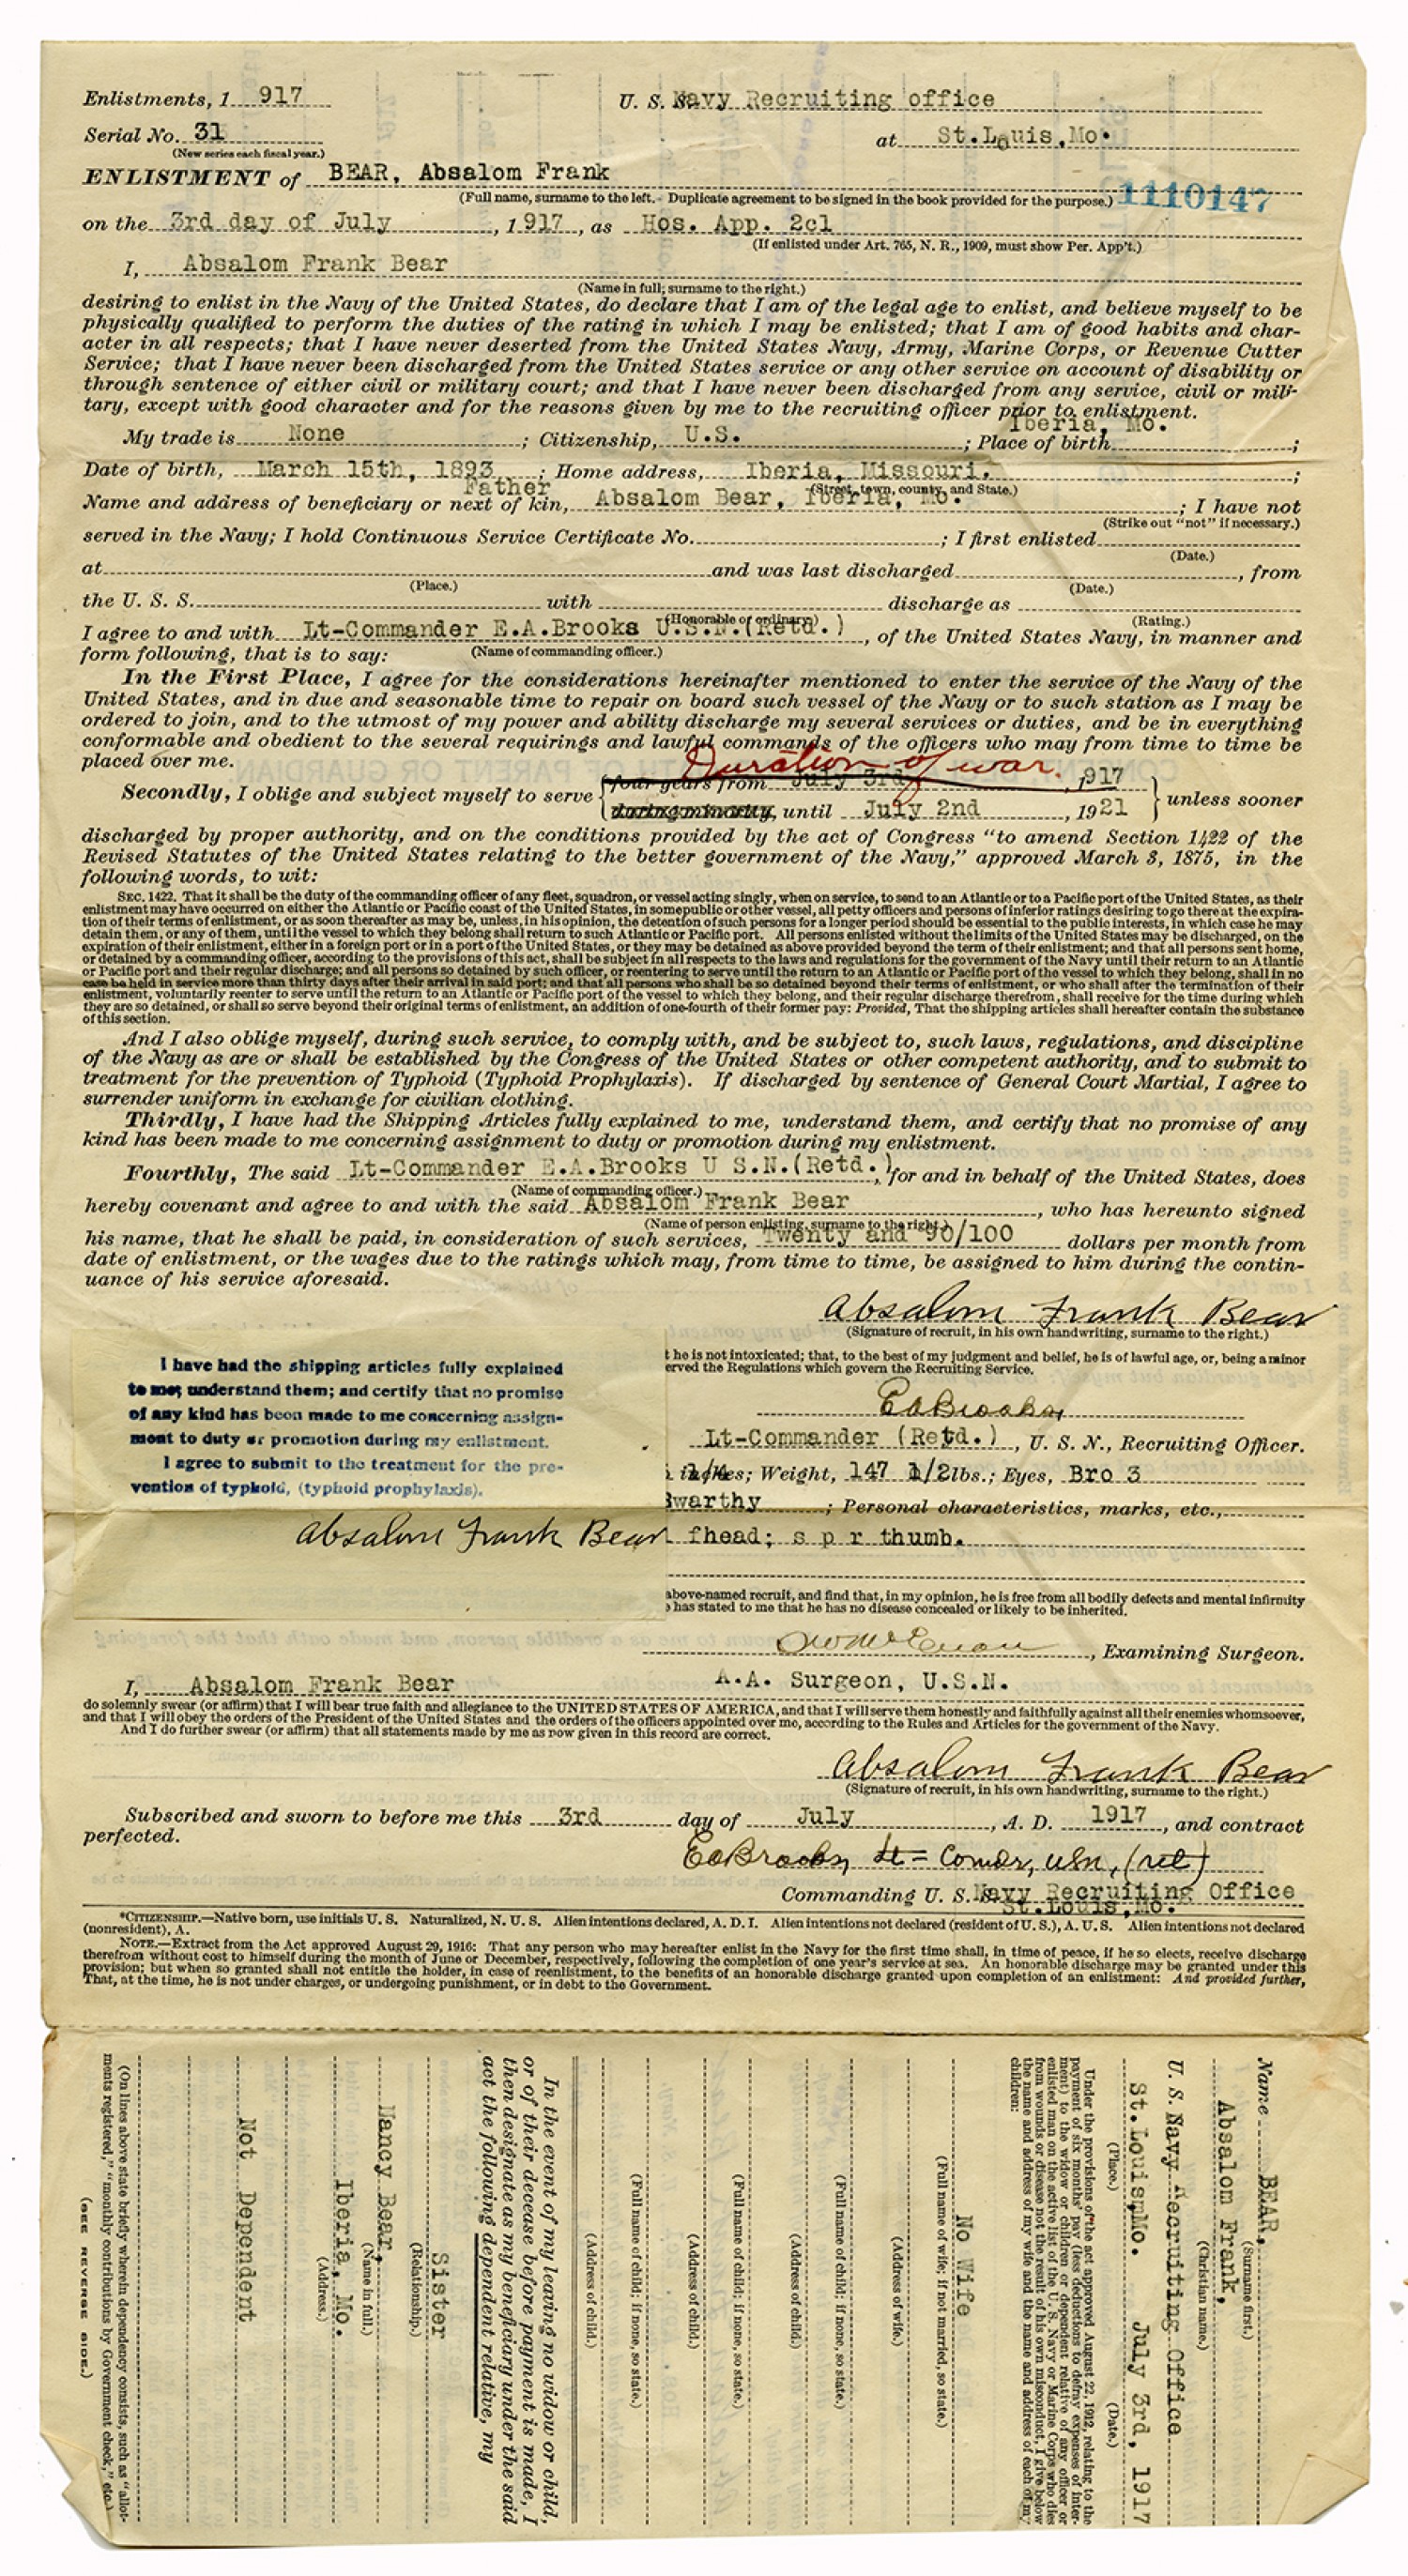 Enlistments, 1 917
U. S. S. Navy Recruiting office
Serial No. 31
(New series each fiscal year.)
at St.Louis,Mo.
ENLISTMENT of BEAR, Absalom Frank
(Full name, surname to the left. Duplicate agreement to be signed in the book provided for the purpose.) 1110147
on the 3rd day of July, 1 917, as Hos. App. 2cl
(If enlisted under Art. 765, N. R., 1909, must show Per. App't.)
I, Absalom Frank Bear
(Name in full; surname to the right.)
desiring to enlist in the Navy of the United States, do declare that I am of the legal age to enlist, and believe myself to be
physically qualified to perform the duties of the rating in which I may be enlisted; that I am of good habits and char-
acter in all respects; that I have never deserted from the United States Navy, Army, Marine Corps, or Revenue Cutter
Service; that I have never been discharged from the United States service or any other service on account of disability or
through sentence of either civil or military court; and that I have never been discharged from any service, civil or mili-
tary, except with good character and for the reasons given by me to the recruiting officer prior to enlistment.
My trade is None; Citizenship, U.S.; Place of birth Iberia, Mo.;
Date of birth, March 15th, 1893; Home address, Iberia, Missouri.;
(Street, town, county, and State.)
Father
Name and address of beneficiary or next of kin, Absalom Bear, Iberia, Mo.; I have not
(Strike out "not" if necessary.)
served in the Navy; I hold Continuous Service Certificate No. ; I first enlisted
(Date.)
at and was last discharged , from
(Place.) (Date.)
the U. S. S. with discharge as
(Honorable or ordinary.) (Rating.)
I agree to and with Lt-Commander E.A.Brooks U.S.N.(Retd.), of the United States Navy, in manner and
(Name of commanding officer.)
form following, that is to say:
In the First Place, I agree for the considerations hereinafter mentioned to enter the service of the Navy of the
United States, and in due and seasonable time to repair on board such vessel of the Navy or to such station as I may be
ordered to join, and to the utmost of my power and ability discharge my several services or duties, and be in everything
conformable and obedient to the several requirings and lawful commands of the officers who may from time to time be
placed over me.
Duration of war.
Secondly, I oblige and subject myself to serve four years from July 3rd, 1917
during minority, until July 2nd, 1921 unless sooner
discharged by proper authority, and on the conditions provided by the act of Congress "to amend Section 1422 of the
Revised Statutes of the United States relating to the better government of the Navy," approved March 3, 1875, in the
following words, to wit:
SEC. 1422. That it shall be the duty of the commanding officer of any fleet, squadron, or vessel acting singly, when on service, to send to an Atlantic or to a Pacific port of the United States, as their
enlistment may have occurred on either the Atlantic or Pacific coast of the United States, in some public or other vessel, all petty officers and persons of inferior ratings desiring to go there at the expira-
tion of their terms of enlistment, or as soon thereafter as may be, unless, in his opinion, the detention of such persons for a longer period should be essential to the public interests, in which case he may
detain them, or any of them, until the vessel to which they belong shall return to such Atlantic or Pacific port. All persons enlisted without the limits of the United States may be discharged, on the
expiration of their enlistment, either in a foreign port or in a port of the United States, or they may be detained as above provided beyond the term of their enlistment; and that all persons sent home,
or detained by a commanding officer, according to the provisions of this act, shall be subject in all respects to the laws and regulations for the government of the Navy until their return to an Atlantic
or Pacific port and their regular discharge; and all persons so detained by such officer, or reentering to serve until the return to an Atlantic or Pacific port of the vessel to which they belong, shall in no
case be held in service more than thirty days after their arrival in said port; and that all persons who shall be so detained beyond their terms of enlistment, or who shall after the termination of their
enlistment, voluntarily reenter to serve until the return to an Atlantic or Pacific port of the vessel to which they belong, and their regular discharge therefrom, shall receive for the time during which
they are so detained, or shall so serve beyond their original terms of enlistment, an addition of one-fourth of their former pay: Provided, That the shipping articles shall hereafter contain the substance
of this section.
And I also oblige myself, during such service, to comply with, and be subject to, such laws, regulations, and discipline
of the Navy as are or shall be established by the Congress of the United States or other competent authority, and to submit to
treatment for the prevention of Typhoid (Typhoid Prophylaxis). If discharged by sentence of General Court Martial, I agree to
surrender uniform in exchange for civilian clothing.
Thirdly, I have had the Shipping Articles fully explained to me, understand them, and certify that no promise of any
kind has been made to me concerning assignment to duty or promotion during my enlistment.
Fourthly, The said Lt-Commander E.A.Brooks U S.N.(Retd.), for and in behalf of the United States, does
(Name of commanding officer.)
hereby covenant and agree to and with the said Absalom Frank Bear, who has hereunto signed
(Name of person enlisting, surname to the right.)
his name, that he shall be paid, in consideration of such services, Twenty and 90/100 dollars per month from
date of enlistment, or the wages due to the ratings which may, from time to time, be assigned to him during the contin-
uance of his service aforesaid.
Absalom Frank Bear
(Signature of recruit, in his own handwriting, surname to the right.)
t he is not intoxicated; that, to the best of my judgment and belief, he is of lawful age, or, being a minor
erved the Regulations which govern the Recruiting Service.
EABrooks
Lt-Commander (Retd.), U. S. N., Recruiting Officer.
1/4 inches; Weight, 147 1/2 lbs.; Eyes, Bro 3
Swarthy; Personal characteristics, marks, etc.,
fhead; s p r thumb.
I have had the shipping articles fully explained
to me; understand them; and certify that no promise
of any kind has been made to me concerning assign-
ment to duty or promotion during my enlistment.
I agree to submit to the treatment for the pre-
vention of typhoid, (typhoid prophylaxis).
Absalom Frank Bear
above-named recruit, and find that, in my opinion, he is free from all bodily defects and mental infirmity
has stated to me that he has no disease concealed or likely to be inherited.
, Examining Surgeon.
A.A. Surgeon, U.S.N.
I, Absalom Frank Bear
do solemnly swear (or affirm) that I will bear true faith and allegiance to the UNITED STATES OF AMERICA, and that I will serve them honestly and faithfully against all their enemies whomsoever,
and that I will obey the orders of the President of the United States and the orders of the officers appointed over me, according to the Rules and Articles for the government of the Navy.
And I do further swear (or affirm) that all statements made by me as now given in this record are correct.
Absalom Frank Bear
(Signature of recruit, in his own handwriting, surname to the right.)
Subscribed and sworn to before me this 3rd day of July, A. D. 1917, and contract
perfected.
EABrooks, Lt=Comdr, USN, (ret)
Commanding U. S. S. Navy Recruiting Office
St.Louis,Mo.
*CITIZENSHIP.—Native born, use initials U. S. Naturalized, N. U. S. Alien intentions declared, A. D. I. Alien intentions not declared (resident of U. S.), A. U. S. Alien intentions not declared
(nonresident), A.
NOTE.—Extract from the Act approved August 29, 1916: That any person who may hereafter enlist in the Navy for the first time shall, in time of peace, if he so elects, receive discharge
therefrom without cost to himself during the month of June or December, respectively, following the completion of one year's service at sea. An honorable discharge may be granted under this
provision; but when so granted shall not entitle the holder, in case of reenlistment, to the benefits of an honorable discharge granted upon completion of an enlistment: And provided further,
That, at the time, he is not under charges, or undergoing punishment, or in debt to the Government.
Name BEAR,
(Surname first.)
Absalom Frank,
(Christian name.)
U. S. Navy Recruiting Office
St.Louis,Mo. July 3rd, 1917
(Place.) (Date.)
Under the provisions of the act approved August 22, 1912, relating to the
payment of six months' pay (less deductions to defray expenses of inter-
ment) to the widow or children or dependent relative of any officer or
enlisted man on the active list of the U. S. Navy or Marine Corps who dies
from wounds or disease not the result of his own misconduct, I give below
the name and address of my wife and the name and address of each of my
children:
No Wife
(Full name of wife; if not married, so state.)
(Address of wife.)
(Full name of child; if none, so state.)
(Address of child.)
(Full name of child; if none, so state.)
(Address of child.)
(Full name of child; if none, so state.)
(Address of child.)
In the event of my leaving no widow or child,
or of their decease before payment is made, I
then designate as my beneficiary under the said
act the following dependent relative, my
Sister
(Relationship.)
Nancy Bear,
(Name in full.)
Iberia, Mo.
(Address.)
Not Dependent
(On lines above state briefly wherein dependency consists, such as "allot-
ments registered," "monthly contributions by Government check," etc.)
(SEE REVERSE SIDE.)